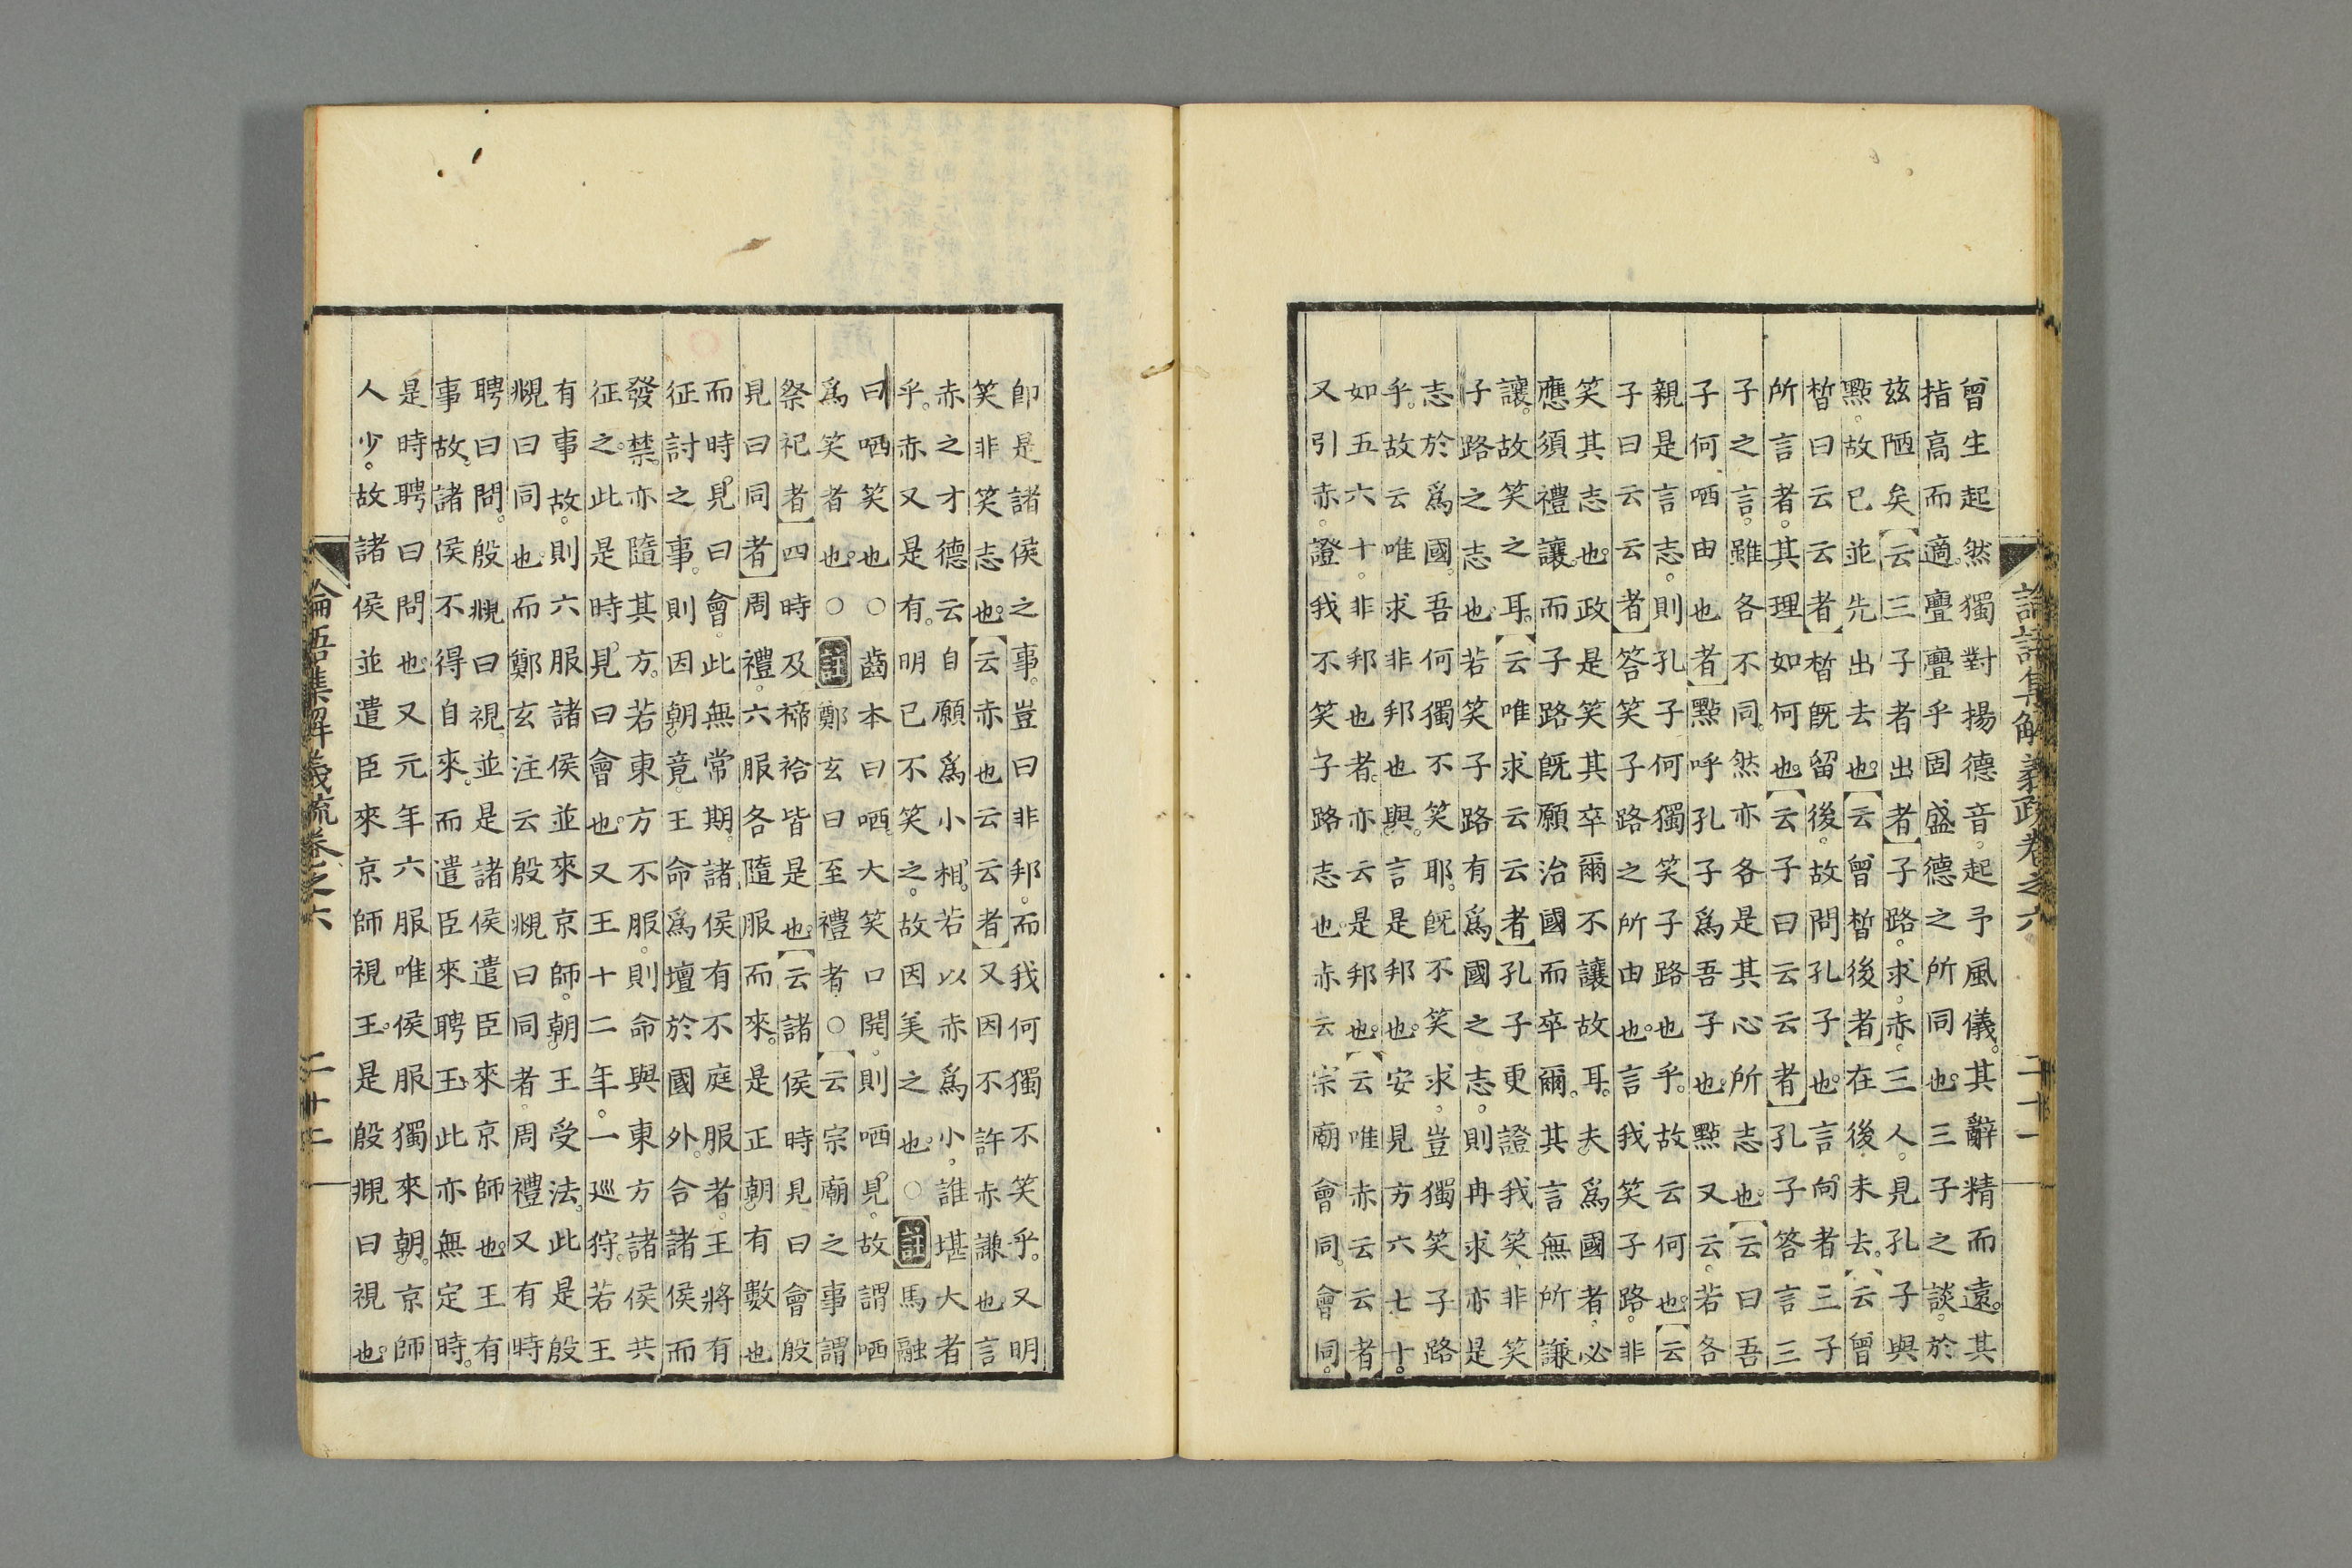 論語集解義疏卷之六 二十一
曾生起然獨對揚德音。起予風儀。其辭精而遠。其
指高而適。亹亹乎固盛德之所同也。三子之談。於
茲陋矣【云三子者出者】子路。求。赤。三人。見孔子與
點。故已並先出去也。【云曾晳後者】在後未去。【云曾
晳曰云云者】晳既留後。故問孔子也。言向者三子
所言者。其理如何也。【云子曰云云者】孔子答言三
子之言。雖各不同。然亦各是其心所志也。【云曰吾
子何哂由也者】點呼孔子爲吾子也。點又云。若各
親是言志。則孔子何獨笑子路也乎。故云何也。【云
子曰云云者】答笑子路之所由也。言我笑子路。非
笑其志也。政是笑其卒爾不讓故耳。夫爲國者。必
應須禮讓。而子路既願治國而卒爾。其言無所謙
讓。故笑之耳。【云唯求云云者】孔子更證我笑。非笑
子路之志也。若笑子路有爲國之志。則冉求亦是
志於爲國。吾何獨不笑耶。既不笑求。豈獨笑子路
乎。故云唯求非邦也與。言是邦也。安見方六七十。
如五六十。非邦也者。亦云是邦也。【云唯赤云云者】
又引赤。證我不笑子路志也。赤云宗廟會同。會同。
即是諸侯之事。豈曰非邦。而我何獨不笑乎。又明
笑非笑志也。【云赤也云云者】又因不許赤謙也。言
赤之才德云自願爲小相。若以赤爲小。誰堪大者
乎。赤又是有。明已不笑之。故因美之也。○【註】馬融
曰哂笑也○齒本曰哂。大笑口開。則哂見。故謂哂
爲笑者也。○【註】鄭玄曰至禮者○【云宗廟之事謂
祭祀者】四時及禘祫皆是也。【云諸侯時見曰會殷
見曰同者】周禮。六服各隨服而來。是正朝有數也
而時見曰會。此無常期。諸侯有不庭服者。王將有
征討之事。則因朝竟。王命爲壇於國外。合諸侯而
發禁。亦隨其方。若東方不服。則命與東方諸侯共
征之。此是時見曰會也。又王十二年。一巡狩。若王
有事故。則六服諸侯並來京師。朝王受法。此是殷
覜曰同也。而鄭玄注云殷覜曰同者。周禮又有時
聘曰問。殷覜曰視。並是諸侯遣臣來京師也。王有
事故。諸侯不得自來。而遣臣來聘王。此亦無定時。
是時聘曰問也。又元年六服唯侯服獨來朝。京師
人少。故諸侯並遣臣來京師視王。是殷覜曰視也。
論語集解義疏卷之六 二十二